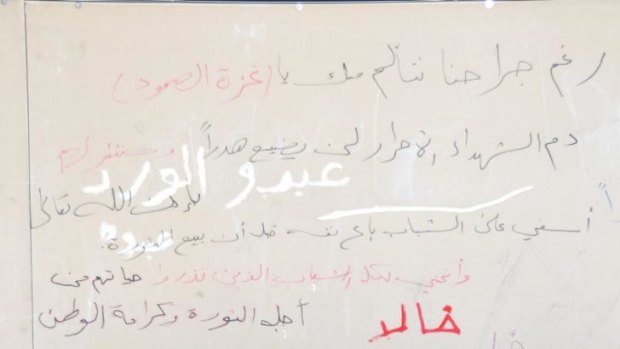 رغم جراحنا نتألم منك يا (غزة الصمود)
دم الشهداء الأحرار لن يضيع هدراً
عبدو الورد
بإذن الله تعالى
أسفي على الشباب باع نفسه قبل أن يبيع الثورة.
وأنحني لكل الشباب الذين نذروا حياتهم من
أجل الثورة وكرامة الوطن
خالد